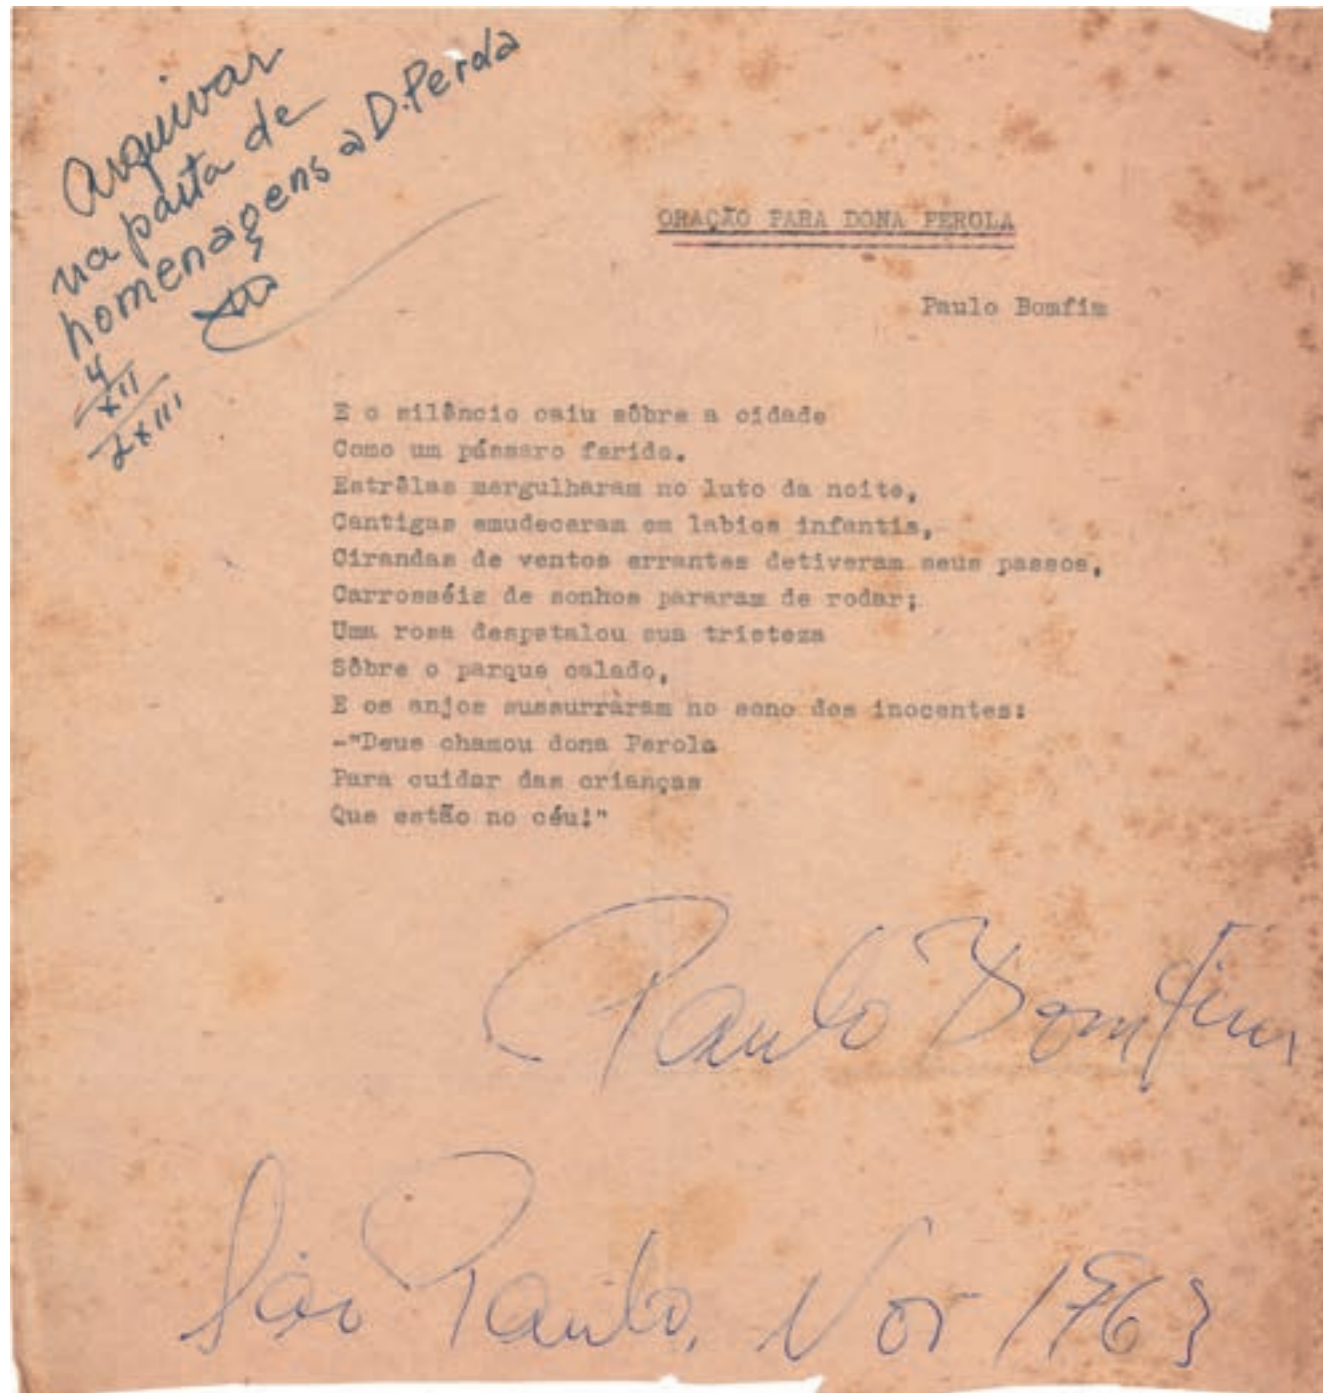 Arquivar
na pasta de
homenagens a D. Perola
4
XII
LXIII
ORAÇÃO PARA DONA PEROLA
Paulo Bomfim
E o silêncio caiu sôbre a cidade
Como um pássaro ferido.
Estrêlas mergulharam no luto da noite,
Cantigas emudeceram em labios infantis,
Cirandas de ventos errantes detiveram seus passos,
Carrosséis de sonhos pararam de rodar;
Uma rosa despetalou sua tristeza
Sôbre o parque calado,
E os anjos sussurraram no sono dos inocentes:
-"Deus chamou dona Perola
Para cuidar das crianças
Que estão no céu!"
Paulo Bomfim
São Paulo, Nov 1963